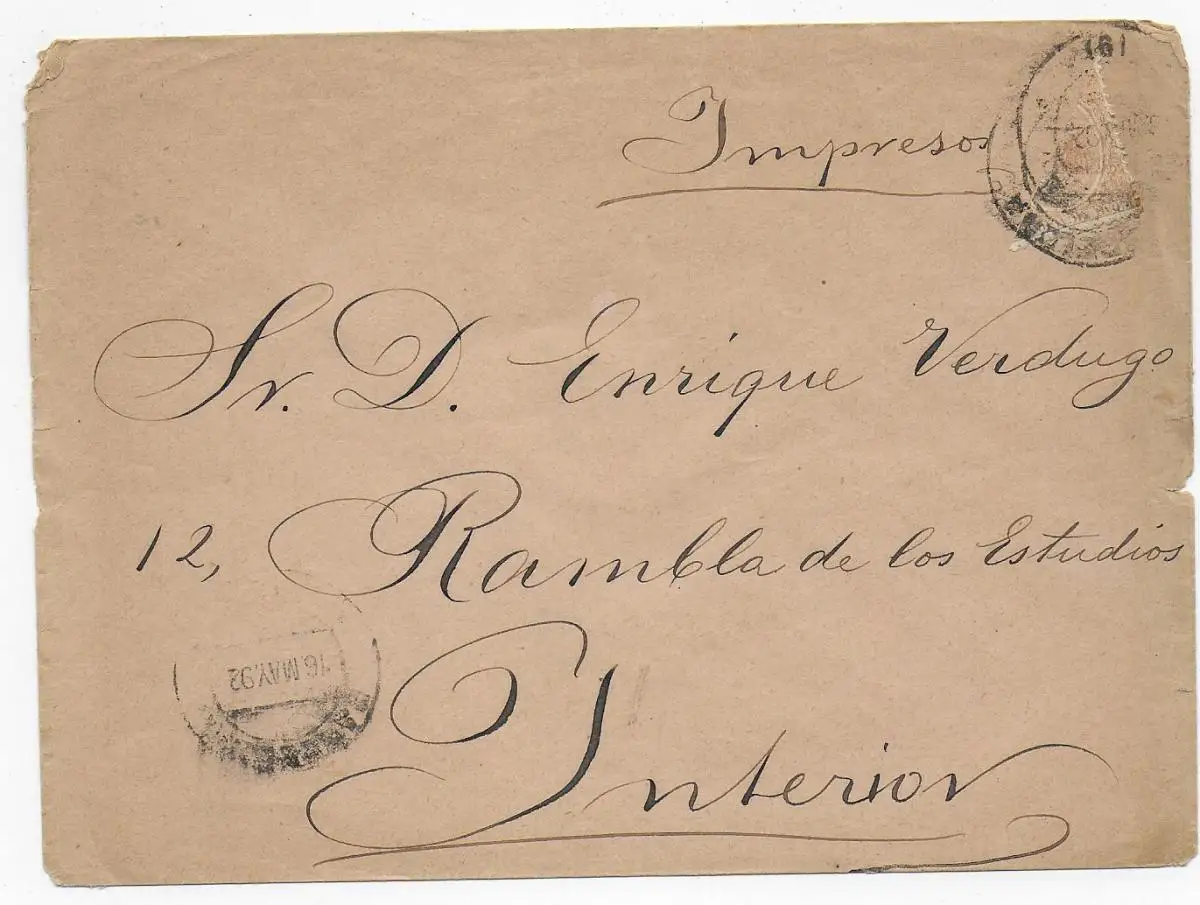 Impresos
Sr. D. Enrique Verdugo
12, Rambla de los Estudios
16 MAY.92
Interior